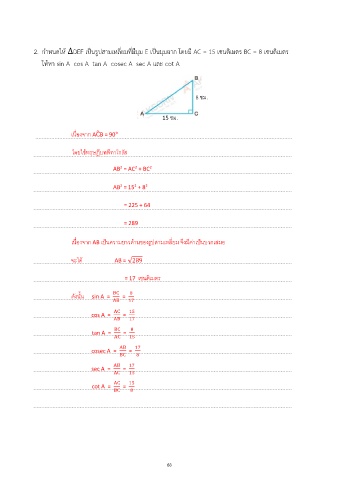 2. กำหนดให้ ΔDEF เป็นรูปสามเหลี่ยมที่มีมุม E เป็นมุมฉาก โดยมี AC = 15 เซนติเมตร BC = 8 เซนติเมตร
ให้หา sin A cos A tan A cosec A sec A และ cot A
B
8 ซม.
A C
15 ซม.
เนื่องจาก AĈB = 90°
โดยใช้ทฤษฎีบทพีทาโกรัส
AB² = AC² + BC²
AB² = 15² + 8²
= 225 + 64
= 289
เนื่องจาก AB เป็นความยาวด้านของรูปสามเหลี่ยม จึงมีค่าเป็นบวกเสมอ
จะได้ AB = √289
= 17 เซนติเมตร
ดังนั้น sin A = BC/AB = 8/17
cos A = AC/AB = 15/17
tan A = BC/AC = 8/15
cosec A = AB/BC = 17/8
sec A = AB/AC = 17/15
cot A = AC/BC = 15/8